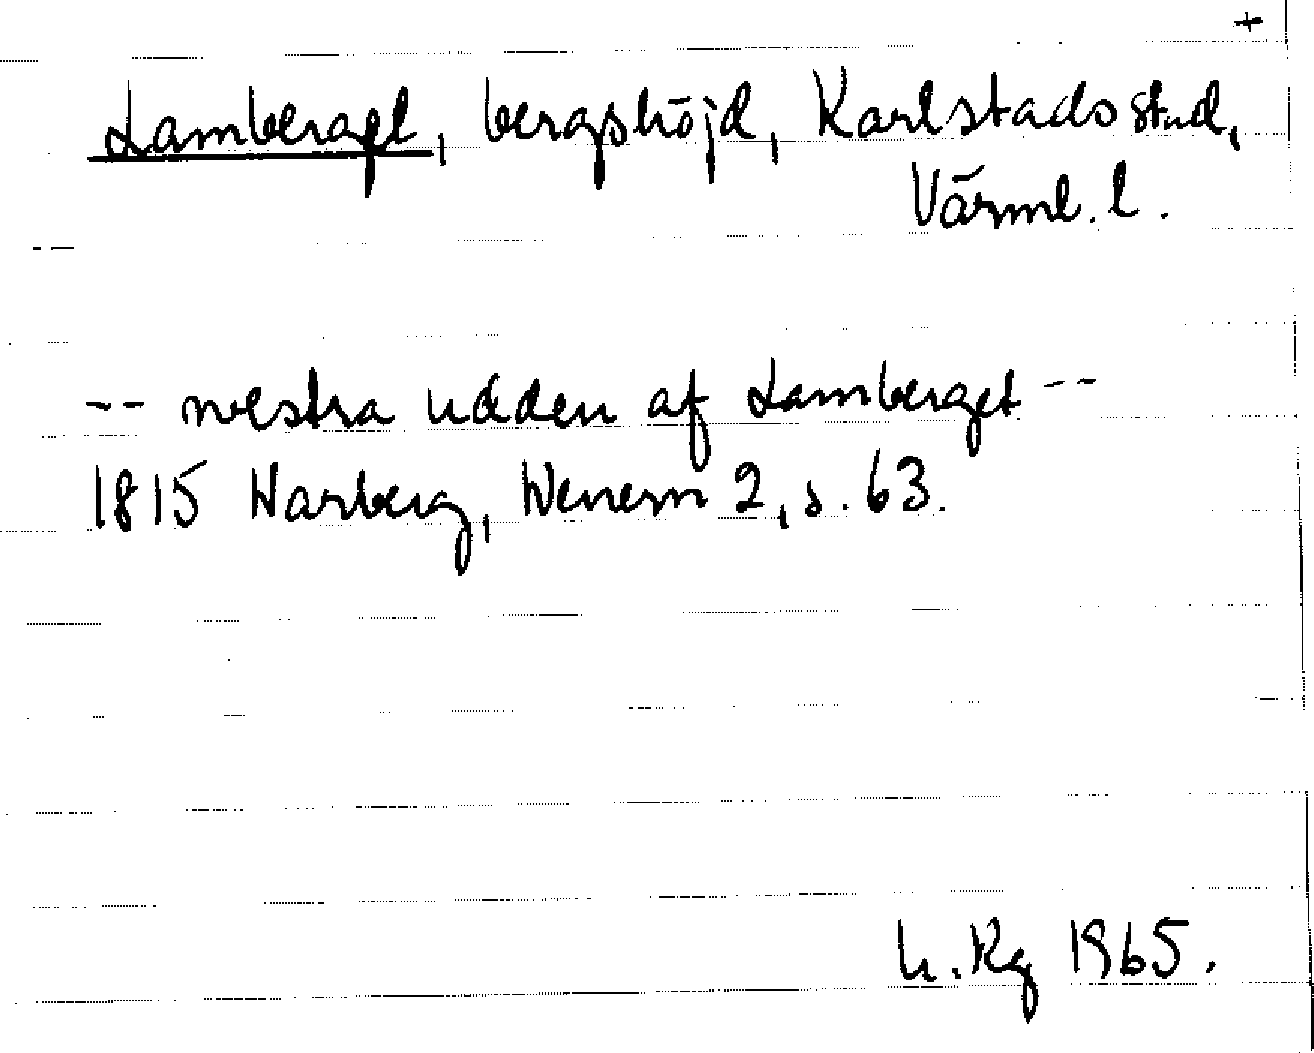 +
Lamberget, bergshöjd, Karlstads stad,
Värml. l.
-- westra udden af Lamberget --
1815 Warberg, Wenern 2, s. 63.
h. Rg 1965.